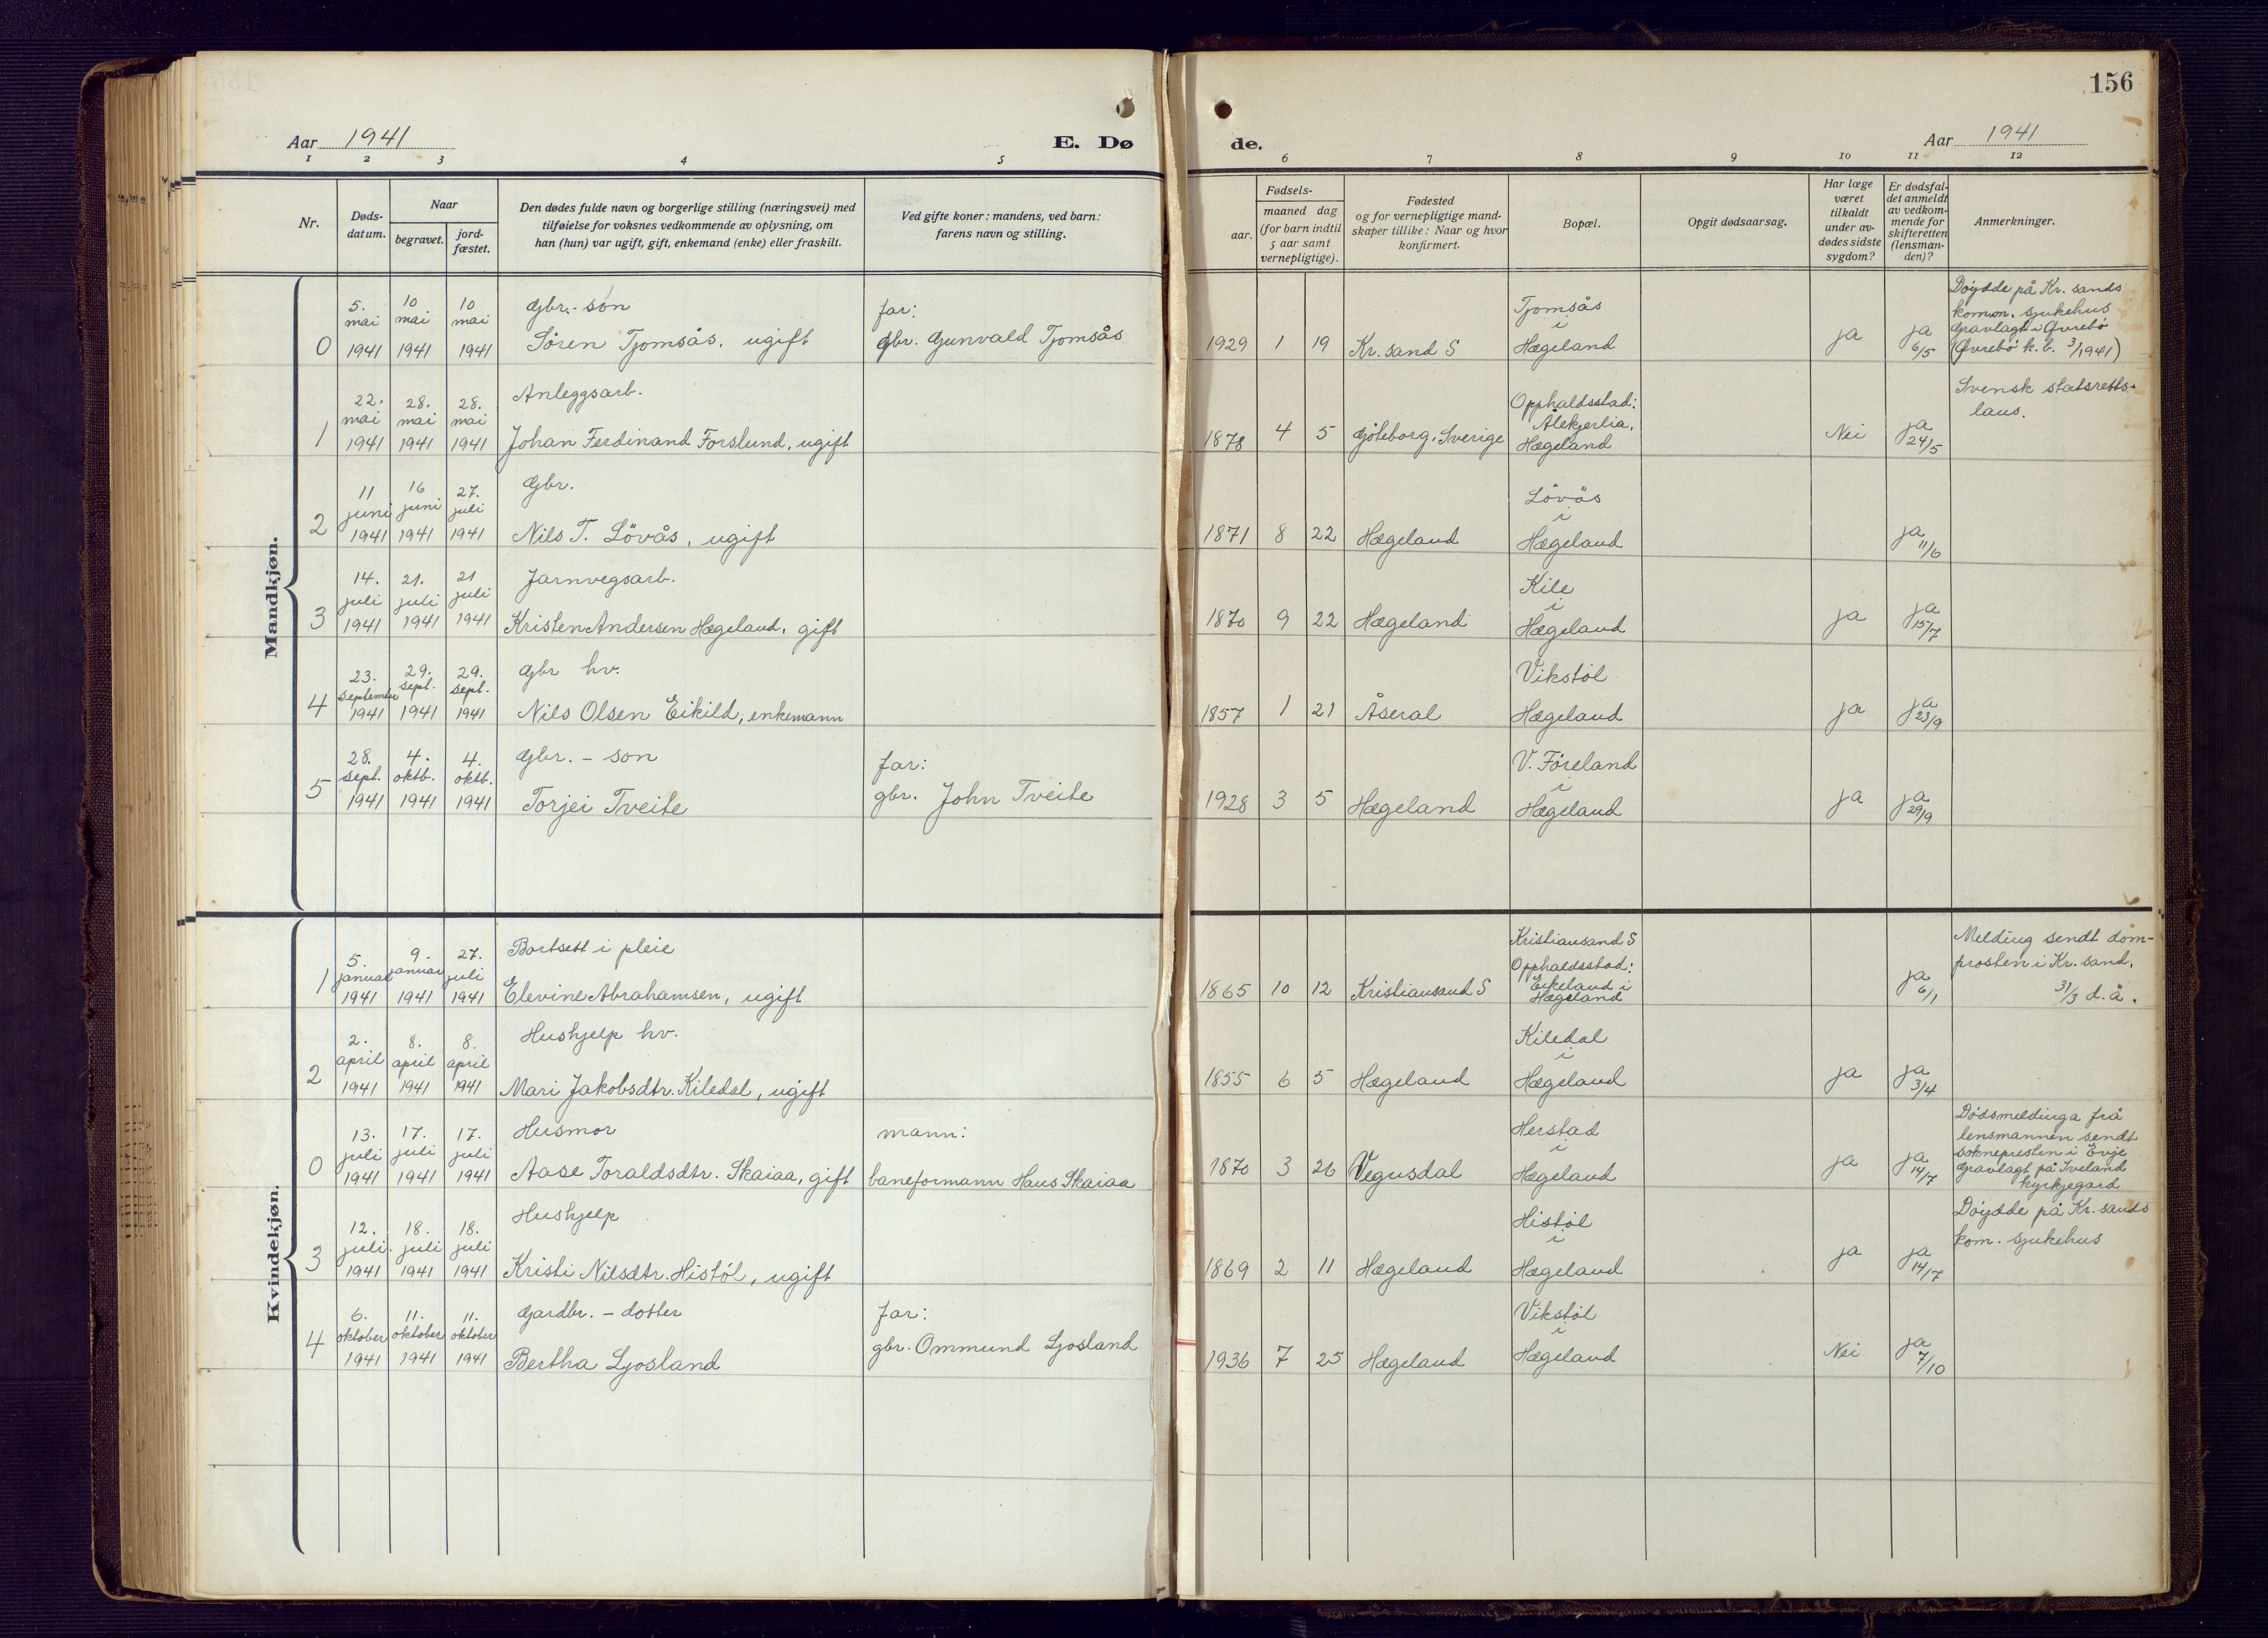 156
Aar 1941
E. Døde.
Aar 1941
1 2 3 4 5 6 7 8 9 10 11 12
Nr.
Døds-
datum.
Naar
begravet.
jord-
fæstet.
Den dødes fulde navn og borgerlige stilling (næringsvei) med
tilføielse for voksnes vedkommende av oplysning, om
han (hun) var ugift, gift, enkemand (enke) eller fraskilt.
Ved gifte koner: mandens, ved barn:
farens navn og stilling.
Fødsels-
aar.
maaned dag
(for barn indtil
5 aar samt
vernepligtige).
Fødested
og for vernepligtige mand-
skaper tillike: Naar og hvor
konfirmert.
Bopæl.
Opgit dødsaarsag.
Har læge
været
tilkaldt
under av-
dødes sidste
sygdom?
Er dødsfal-
det anmeldt
av vedkom-
mende for
skifteretten
(lensman-
den)?
Anmerkninger.
Mandkjøn.
0
5.
mai
1941
10
mai
1941
10
mai
1941
Gbr.-søn
Søren Tjomsås, ugift
far:
Gbr. Gunvald Tjomsås
1929 1 19
Kr.sand S
Tjomsås
i
Hægeland
ja
ja
6/5
Døydde på Kr.sands
komm. sjukehus
Gravlagt i Øvrebø
(Øvrebø k.b. 3/1941)
1
22.
mai
1941
28.
mai
1941
28.
mai
1941
Anleggsarb.
Johan Ferdinand Forslund, ugift
1878 4 5
Göteborg, Sverige
Opphaldsstad:
Ålekjerlia,
Hægeland
Nei
ja
24/5
Svensk statsretts-
laus.
2
11
juni
1941
16
juni
1941
27.
juli
1941
Gbr.
Nils T. Lövås, ugift
1871 8 22
Hægeland
Lövås
i
Hægeland
ja
11/6
3
14.
juli
1941
21.
juli
1941
21
juli
1941
Jarnvegsarb.
Kristen Andersen Hægeland, gift
1870 9 22
Hægeland
Kile
i
Hægeland
ja
ja
15/7
4
23.
september
1941
29.
sept.
1941
29.
sept.
1941
Gbr hv.
Nils Olsen Eikild, enkemann
1857 1 21
Åseral
Vikstøl
Hægeland
ja
ja
23/9
5
28.
sept.
1941
4.
oktb.
1941
4.
oktb.
1941
Gbr. - son
Torjei Tveite
far:
gbr. John Tveite
1928 3 5
Hægeland
V. Föreland
i
Hægeland
ja
ja
29/9
Kvindekjøn.
1
5.
januar
1941
9.
januar
1941
27.
juli
1941
Bortsett i pleie
Elevine Abrahamsen, ugift
1865 10 12
Kristiansand S
Kristiansand S
Opphaldsstad:
Eikeland i
Hægeland
ja
6/1
Melding sendt dom-
prosten i Kr.sand,
31/3 d.å.
2
2.
april
1941
8.
april
1941
8.
april
1941
Hushjelp hv.
Mari Jakobsdtr. Kiledal, ugift
1855 6 5
Hægeland
Kiledal
i
Hægeland
ja
ja
3/4
0
13.
juli
1941
17.
juli
1941
17.
juli
1941
Husmor
Aase Toraldsdtr. Skaiaa, gift
mann:
baneformann Hans Skaiaa
1870 3 26
Vegusdal
Herstad
i
Hægeland
ja
ja
14/7
Dødsmeldinga frå
lensmannen sendt
soknepresten i Evje
Gravlagt på Iveland
kyrkjegard
3
12.
juli
1941
18.
juli
1941
18.
juli
1941
Hushjelp
Kristi Nilsdtr. Histøl, ugift
1869 2 11
Hægeland
Histøl
i
Hægeland
ja
ja
14/7
Døydde på Kr.sands
kom. sjukehus
4
6.
oktober
1941
11.
oktober
1941
11.
oktober
1941
Gardbr. - dotter
Bertha Ljosland
Far:
gbr. Ommund Ljosland
1936 7 25
Hægeland
Vikstøl
i
Hægeland
Nei
ja
7/10